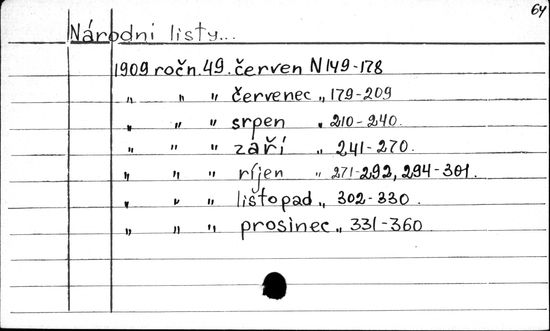 64
Národni listy...
1909 ročn. 49. červen N 149-178
„ „ „ červenec „ 179-209
„ „ „ srpen „ 210-240.
„ „ „ září „ 241-270.
„ „ „ ríjen „ 271-292, 294-301.
„ „ „ listopad „ 302-330.
„ „ „ prosinec „ 331-360.